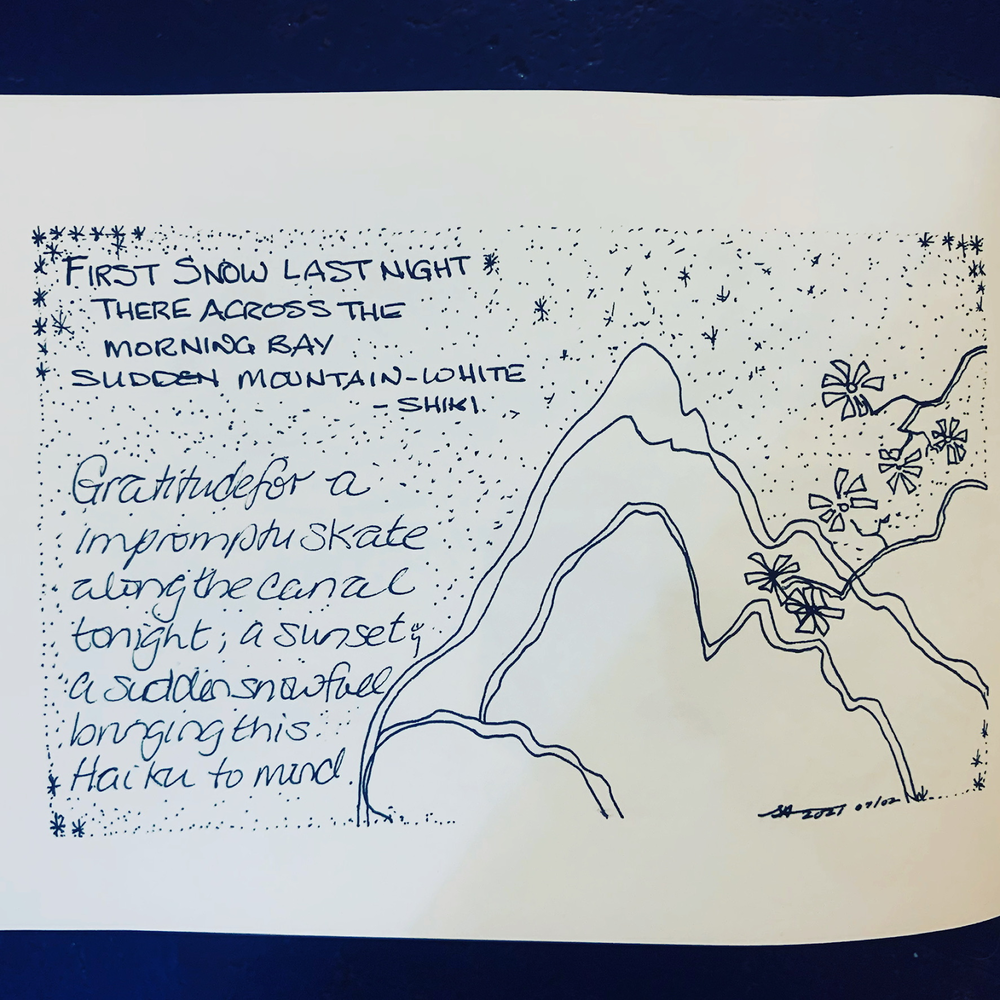 FIRST SNOW LAST NIGHT
THERE ACROSS THE
MORNING BAY
SUDDEN MOUNTAIN-WHITE
- SHIKI.
Gratitude for a
impromptu skate
along the canal
tonight; a sunset;
a sudden snowfall
bringing this
Haiku to mind.
SA 2021 07/02